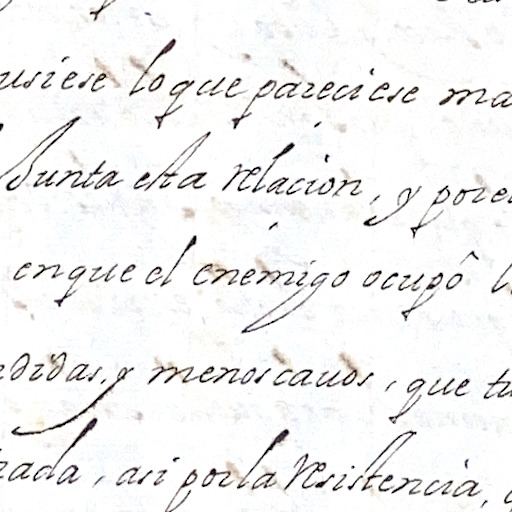 usiese loque pareciese ma
Junta esta relacion, y pore
enque el enemigo ocupô l
didas, y menoscauos, que tu
rada, asi porla resistencia,